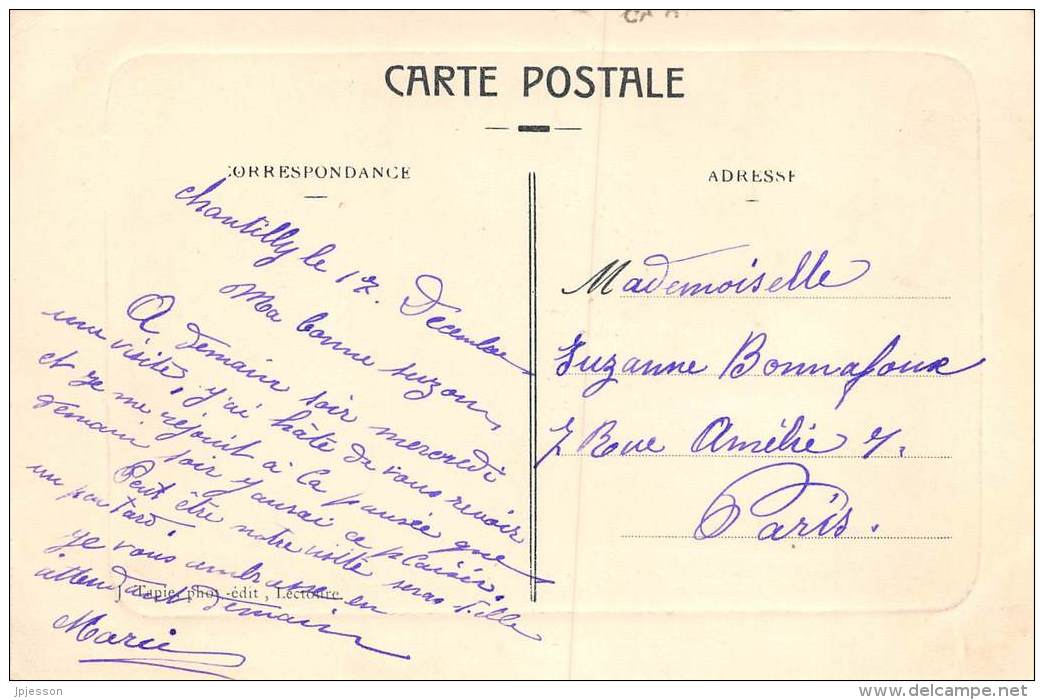 CARTE POSTALE
CORRESPONDANCE
Chantilly le 17. Decembre
Ma bonne suzon,
A demain soir mercredi
une visite, j'ai hâte de vous revoir
et je me rejouit à la pensée que
demain soir j'aurai ce plaisir.
Peut être notre visite seras t'elle
un peu tard.
Je vous embrasse en
attendant demain
Marie
J. Tapie, phot.-édit, Lectoure
ADRESSE
Mademoiselle
Suzanne Bonnafoux
7 Rue Amélie 7.
Paris.
jpjesson
www.delcampe.net